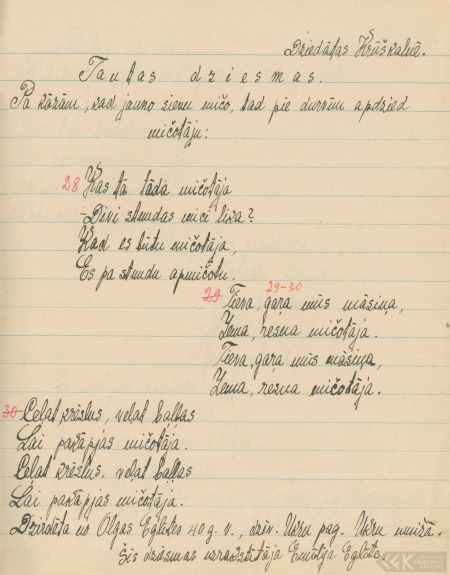 Dziedātas Krūškalnē.
Tautas dziesmas.
Pa kāzām, kad jauno sievu mičo, tad pie durvīm apdzied
mičotāju:
28 Kas tā tāda mičotāja
Divi stundas mici lika?
Kad es būtu mičotāja,
Es pa stundu apmičotu.
29 29-30
Tieva, gaŗa mūs māsiņa,
Zema, resna mičotāja.
Tieva, gaŗa mūs māsiņa,
Zema, resna mičotāja.
30 Celat krēslus, velat baļķas
Lai pakāpjās mičotāja.
Celat krēslus, velat baļķas
Lai pakāpjās mičotāja.
Dzirdēta no Olgas Eglītes 40 g. v., dzīv. Ukru pag. Ukru muižā.
Šīs dziesmas uzrakstītāja Emīlija Eglīte